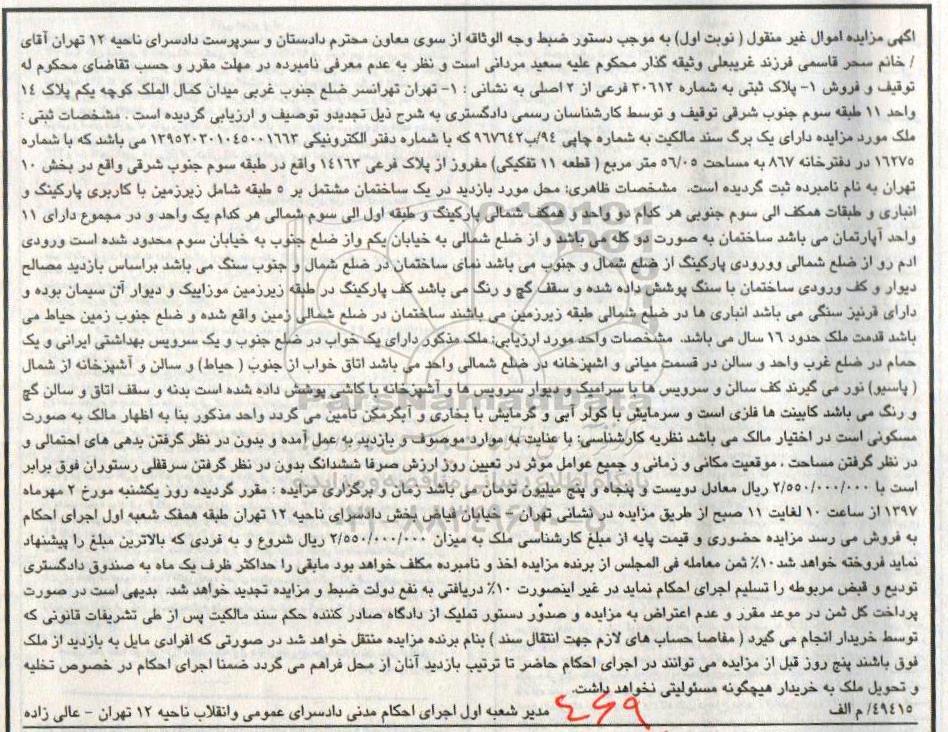 اگهی مزایده اموال غیر منقول ( نوبت اول) به موجب دستور ضبط وجه الوثاقه از سوی معاون محترم دادستان و سرپرست دادسرای ناحیه ۱۲ تهران آقای
/ خانم سحر قاسمی فرزند غریبعلی وثیقه گذار محکوم علیه سعید مردانی است و نظر به عدم معرفی نامبرده در مهلت مقرر و حسب تقاضای محکوم له
توقیف و فروش ۱- پلاک ثبتی به شماره ۳۰۶۱۳ فرعی از ۲ اصلی به نشانی : ۱- تهران تهرانسر ضلع جنوب غربی میدان کمال الملک کوچه یکم پلاک ۱۴
واحد ۱۱ طبقه سوم جنوب شرقی توقیف و توسط کارشناسان رسمی دادگستری به شرح ذیل تجدیدو توصیف و ارزیابی گردیده است . مشخصات ثبتی :
ملک مورد مزایده دارای یک برگ سند مالکیت به شماره چاپی ۹۶۷۶۴۲ب/۹۴ که با شماره دفتر الکترونیکی ۱۳۹۵۲۰۳۰۱۰۴۵۰۰۱۶۶۳ می باشد که با شماره
۱۶۲۷۵ در دفترخانه ۸۶۷ به مساحت ۵۶/۰۵ متر مربع ( قطعه ۱۱ تفکیکی) مفروز از پلاک فرعی ۱۴۱۶۳ واقع در طبقه سوم جنوب شرقی واقع در بخش ۱۰
تهران به نام نامبرده ثبت گردیده است. مشخصات ظاهری: محل مورد بازدید در یک ساختمان مشتمل بر ۵ طبقه شامل زیرزمین با کاربری پارکینگ و
انباری و طبقات همکف الی سوم جنوبی هر کدام دو واحد و همکف شمالی پارکینگ و طبقه اول الی سوم شمالی هر کدام یک واحد و در مجموع دارای ۱۱
واحد آپارتمان می باشد ساختمان به صورت دو کله می باشد و از ضلع شمالی به خیابان یکم واز ضلع جنوب به خیابان سوم محدود شده است ورودی
ادم رو از ضلع شمالی وورودی پارکینگ از ضلع شمال و جنوب می باشد نمای ساختمان در ضلع شمال و جنوب سنگ می باشد براساس بازدید مصالح
دیوار و کف ورودی ساختمان با سنگ پوشش داده شده و سقف گچ و رنگ می باشد کف پارکینگ در طبقه زیرزمین موزاییک و دیوار آن سیمان بوده و
دارای قرنیز سنگی می باشد انباری ها در ضلع شمالی طبقه زیرزمین می باشند ساختمان در ضلع شمالی زمین واقع شده و ضلع جنوب زمین حیاط می
باشد قدمت ملک حدود ۱۶ سال می باشد. مشخصات واحد مورد ارزیابی: ملک مذکور دارای یک خواب در ضلع جنوب و یک سرویس بهداشتی ایرانی و یک
حمام در ضلع غرب واحد و سالن در قسمت میانی و اشپزخانه در ضلع شمالی واحد می باشد اتاق خواب از جنوب ( حیاط) و سالن و آشپزخانه از شمال
( پاسیو) نور می گیرند کف سالن و سرویس ها با سرامیک و دیوار سرویس ها و آشپزخانه با کاشی پوشش داده شده است بدنه و سقف اتاق و سالن گچ
و رنگ می باشد کابینت ها فلزی است و سرمایش با کولر آبی و گرمایش با بخاری و آبگرمکن تامین می گردد واحد مذکور بنا به اظهار مالک به صورت
مسکونی است در اختیار مالک می باشد نظریه کارشناسی: با عنایت به موارد موصوف و بازدید به عمل آمده و بدون در نظر گرفتن بدهی های احتمالی و
در نظر گرفتن مساحت ، موقعیت مکانی و زمانی و جمیع عوامل موثر در تعیین روز ارزش صرفا ششدانگ بدون در نظر گرفتن سرقفلی رستوران فوق برابر
است با ۲/۵۵۰/۰۰۰/۰۰۰ ریال معادل دویست و پنجاه و پنج میلیون تومان می باشد زمان و برگزاری مزایده : مقرر گردیده روز یکشنبه مورخ ۲ مهرماه
۱۳۹۷ از ساعت ۱۰ لغایت ۱۱ صبح از طریق مزایده در نشانی تهران – خیابان فیاض بخش دادسرای ناحیه ۱۲ تهران طبقه همفک شعبه اول اجرای احکام
به فروش می رسد مزایده حضوری و قیمت پایه از مبلغ کارشناسی ملک به میزان ۲/۵۵۰/۰۰۰/۰۰۰ ریال شروع و به فردی که بالاترین مبلغ را پیشنهاد
نماید فروخته خواهد شد ۱۰٪ ثمن معامله فی المجلس از برنده مزایده اخذ و نامبرده مکلف خواهد بود مابقی را حداکثر ظرف یک ماه به صندوق دادگستری
تودیع و قبض مربوطه را تسلیم اجرای احکام نماید در غیر اینصورت ۱۰٪ دریافتی به نفع دولت ضبط و مزایده تجدید خواهد شد. بدیهی است در صورت
پرداخت کل ثمن در موعد مقرر و عدم اعتراض به مزایده و صدور دستور تملیک از دادگاه صادر کننده حکم سند مالکیت پس از طی تشریفات قانونی که
توسط خریدار انجام می گیرد ( مفاصا حساب های لازم جهت انتقال سند ) بنام برنده مزایده منتقل خواهد شد در صورتی که افرادی مایل به بازدید از ملک
فوق باشند پنج روز قبل از مزایده می توانند در اجرای احکام حاضر تا ترتیب بازدید آنان از محل فراهم می گردد ضمنا اجرای احکام در خصوص تخلیه
و تحویل ملک به خریدار هیچگونه مسئولیتی نخواهد داشت.
۴۹۴۱۵/ م الف مدیر شعبه اول اجرای احکام مدنی دادسرای عمومی وانقلاب ناحیه ۱۲ تهران – عالی زاده
۴۶۹
ParsNamadData